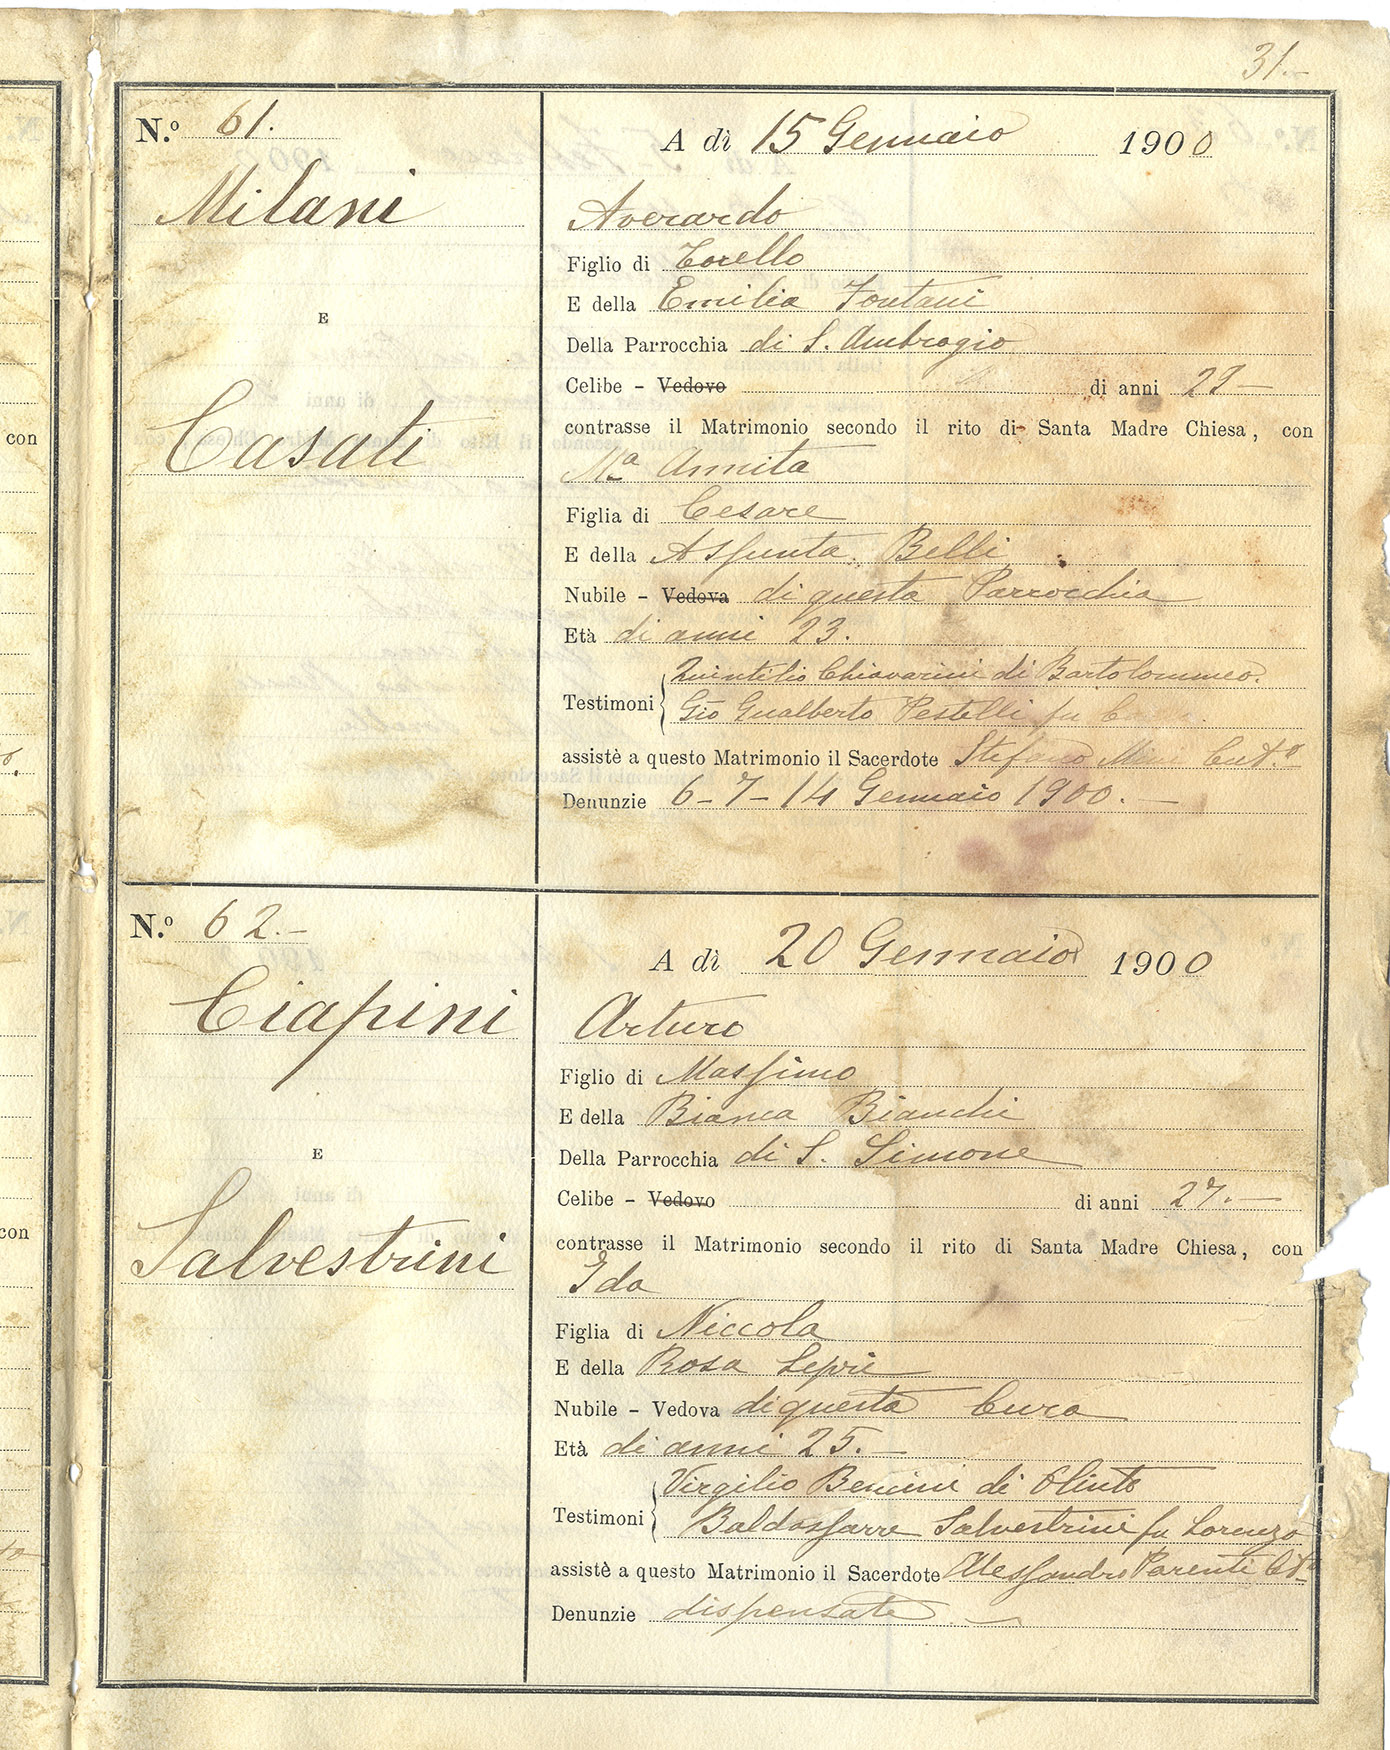 31.-
N.º 61.
Milani
E
Casati
A dì 15 Gennaio 1900
Averardo
Figlio di Torello
E della Emilia Fontani
Della Parrocchia di S. Ambrogio
Celibe - Vedovo di anni 29-
contrasse il Matrimonio secondo il rito di Santa Madre Chiesa, con
Mª Annita
Figlia di Cesare
E della Assunta Belli
Nubile - Vedova di questa Parrocchia
Età di anni 23.
Quintilio Chiavarini di Bartolommeo.
Testimoni
Gio Gualberto Pestelli fu
assistè a questo Matrimonio il Sacerdote Stefano
Denunzie 6-7-14 Gennaio 1900.-
N.º 62.-
Ciapini
E
Salvestrini
A dì 20 Gennaio 1900
Arturo
Figlio di Massimo
E della Bianca Bianchi
Della Parrocchia di S. Simone
Celibe - Vedovo di anni 27.-
contrasse il Matrimonio secondo il rito di Santa Madre Chiesa, con
Ida
Figlia di Niccola
E della Rosa Lepri
Nubile - Vedova di questa Cura
Età di anni 25.-
Virgilio Bencini di Olinto
Testimoni
Baldassarre Salvestrini fu Lorenzo
assistè a questo Matrimonio il Sacerdote Alessandro Parenti
Denunzie dispensate -
con
con